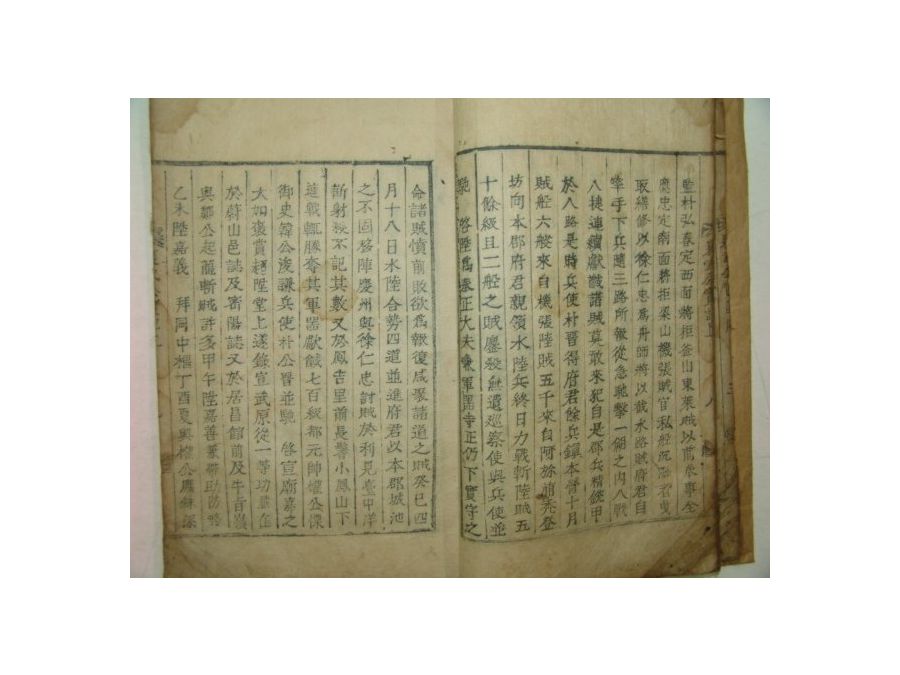 監朴弘春定西面將拒釜山東萊賊以高彦專金
應忠定南面將拒梁山機張賊官私船沉融者曳
取繕修以徐仁忠爲舟師將以截水路賊府君自
率手下兵隨三路所報從急馳擊一朔之內八戰
八捷連續獻馘諸賊莫敢來犯自是郡兵精鍊甲
於八路是時兵使朴晉得府君餘兵鎭本營十月
賊船六艘來自機張陸賊五千來自阿彌萠禿登
坊向本郡府君親領水陸兵終日力戰斬陸賊五
十餘級且二船之賊鏖殺無遺巡察使與兵使並
馳 啓陞爲奉正大夫兼軍器寺正仍下實守之
命諸賊憤前敗欲爲報復咸聚諸道之賊癸巳四
月十八日水陸合勢四道並進府君以本郡城池
之不固移陣慶州與徐仁忠討賊於利見臺甲洋
斬射殺不記其數又於鳳吉里前長鬐小鳳山下
進戰輒勝奪其軍器獻馘七百級都元帥權公慄
御史韓公浚謙兵使朴公晋並馳 啓宣廟嘉之
大加褒賞超陞堂上遂錄宣武原從一等功並在
於蔚山邑誌及密陽誌又於居昌館前及牛旨
與鄭公起龍斬賊許多甲午陞嘉善兼帶助防將
乙未陞嘉義 拜同中樞丁酉夏與權公應銖